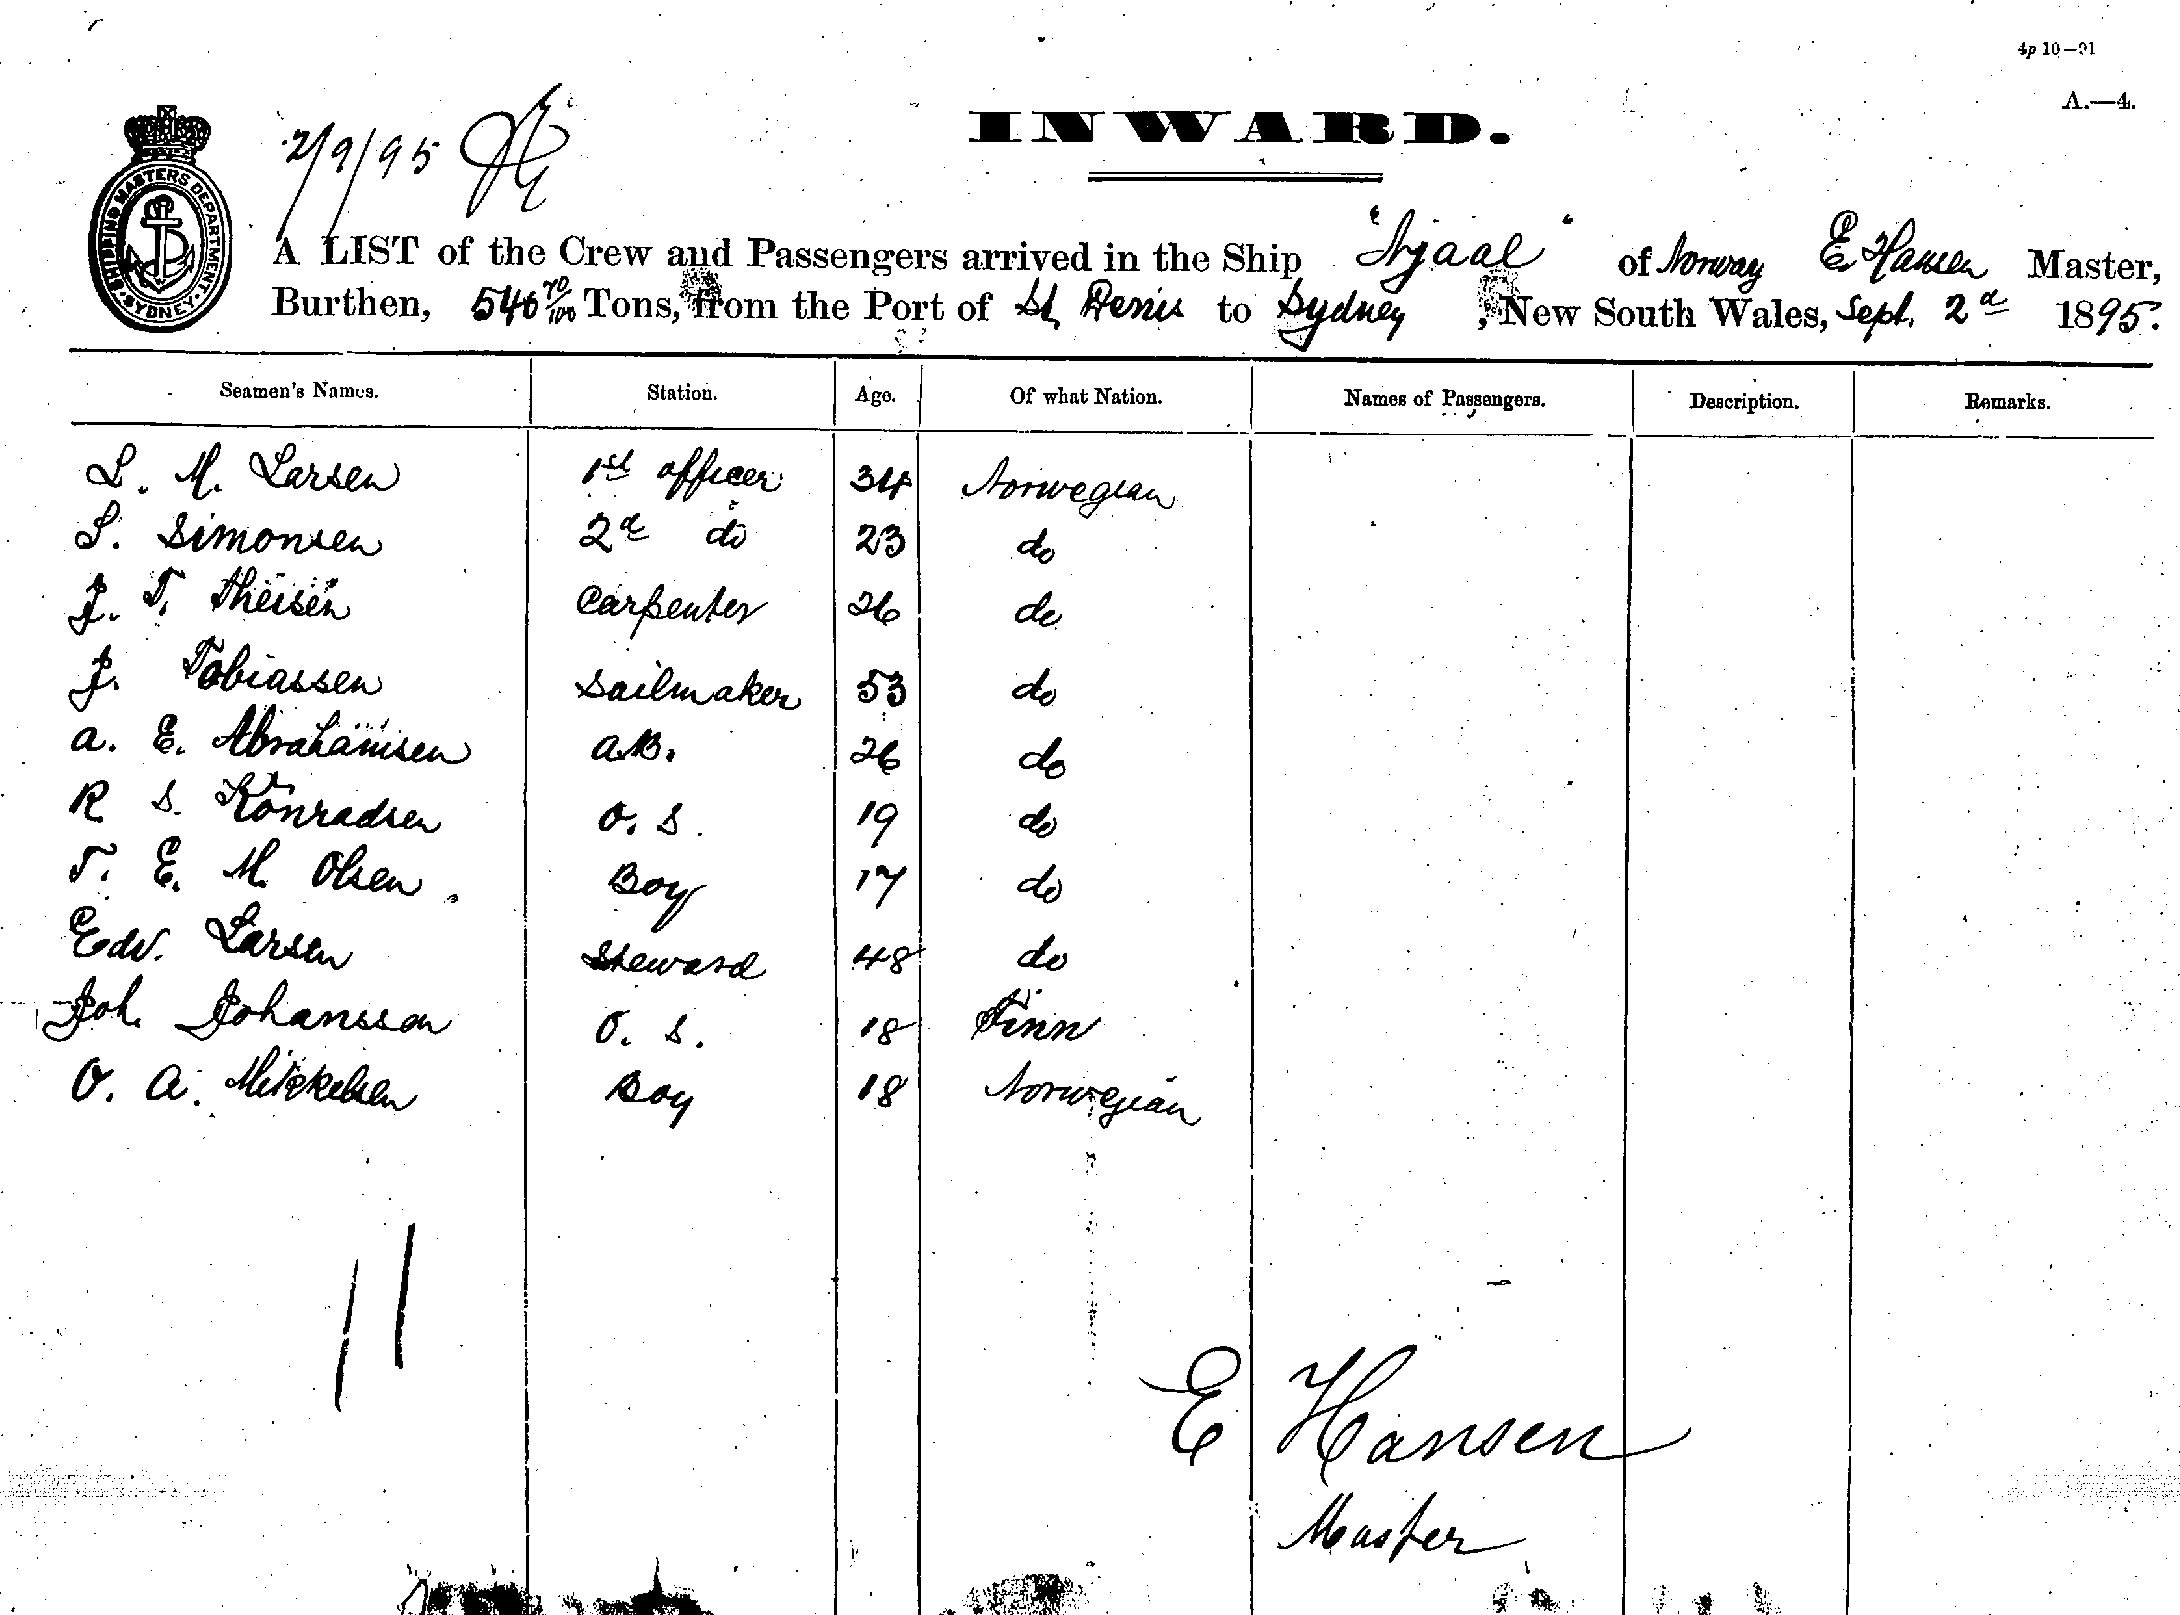 4p 10—91
A.—4.
2/9/95
INWARD.
SHIPPING MASTERS DEPARTMENT. SYDNEY.
A LIST of the Crew and Passengers arrived in the Ship "Njaal" of Norway E. Hansen Master,
Burthen, 540 70/100 Tons, from the Port of St. Denis to Sydney, New South Wales, Sept. 2d 1895.
Seamen's Names. Station. Age. Of what Nation. Names of Passengers. Description. Remarks.
L. M. Larsen 1st officer 34 Norwegian
S. Simonsen 2d do 23 do
J. T. Theisen Carpenter 26 do
J. Tobiassen Sailmaker 53 do
A. E. Abrahamsen A.B. 26 do
R S. Konradsen O. S. 19 do
T. E. M. Olsen. Boy 17 do
Edv. Larsen Steward 48 do
Joh. Johansson O. S. 18 Finn
O. A. Mikkelsen Boy 18 Norwegian
11
E Hansen
Master